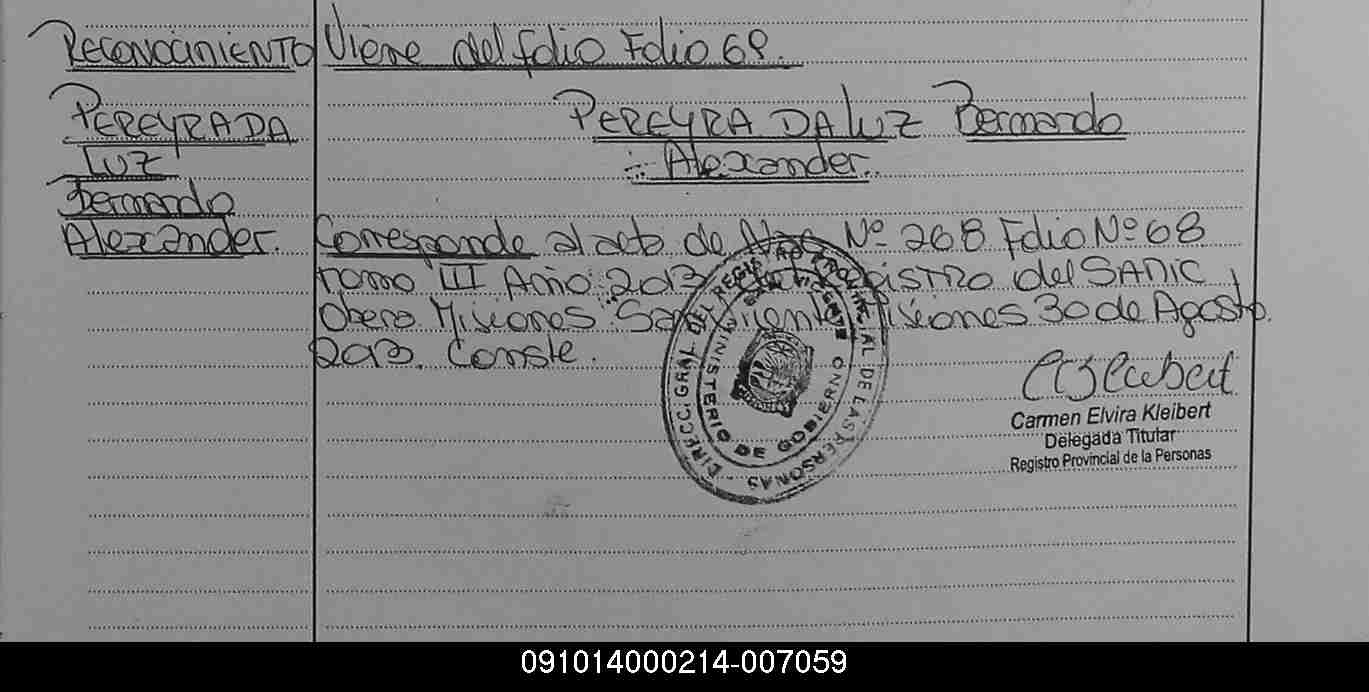 Reconocimiento
Viene del folio Folio 68.
PEREYRA DA
LUZ
Bernardo
Alexander.
PEREYRA DA LUZ Bernardo
Alexander.
Corresponde al acta de Nac Nº 268 Folio Nº 68
tomo III Año: 2013 Registro del SAMIC
Obera Misiones San Vicente Misiones 30 de Agosto
2013. Conste.
DIRECC. GRAL. DEL REGISTRO PROVINCIAL DE LAS PERSONAS
MINISTERIO DE GOBIERNO
SAN VICENTE
Carmen Elvira Kleibert
Delegada Titular
Registro Provincial de la Personas
091014000214-007059